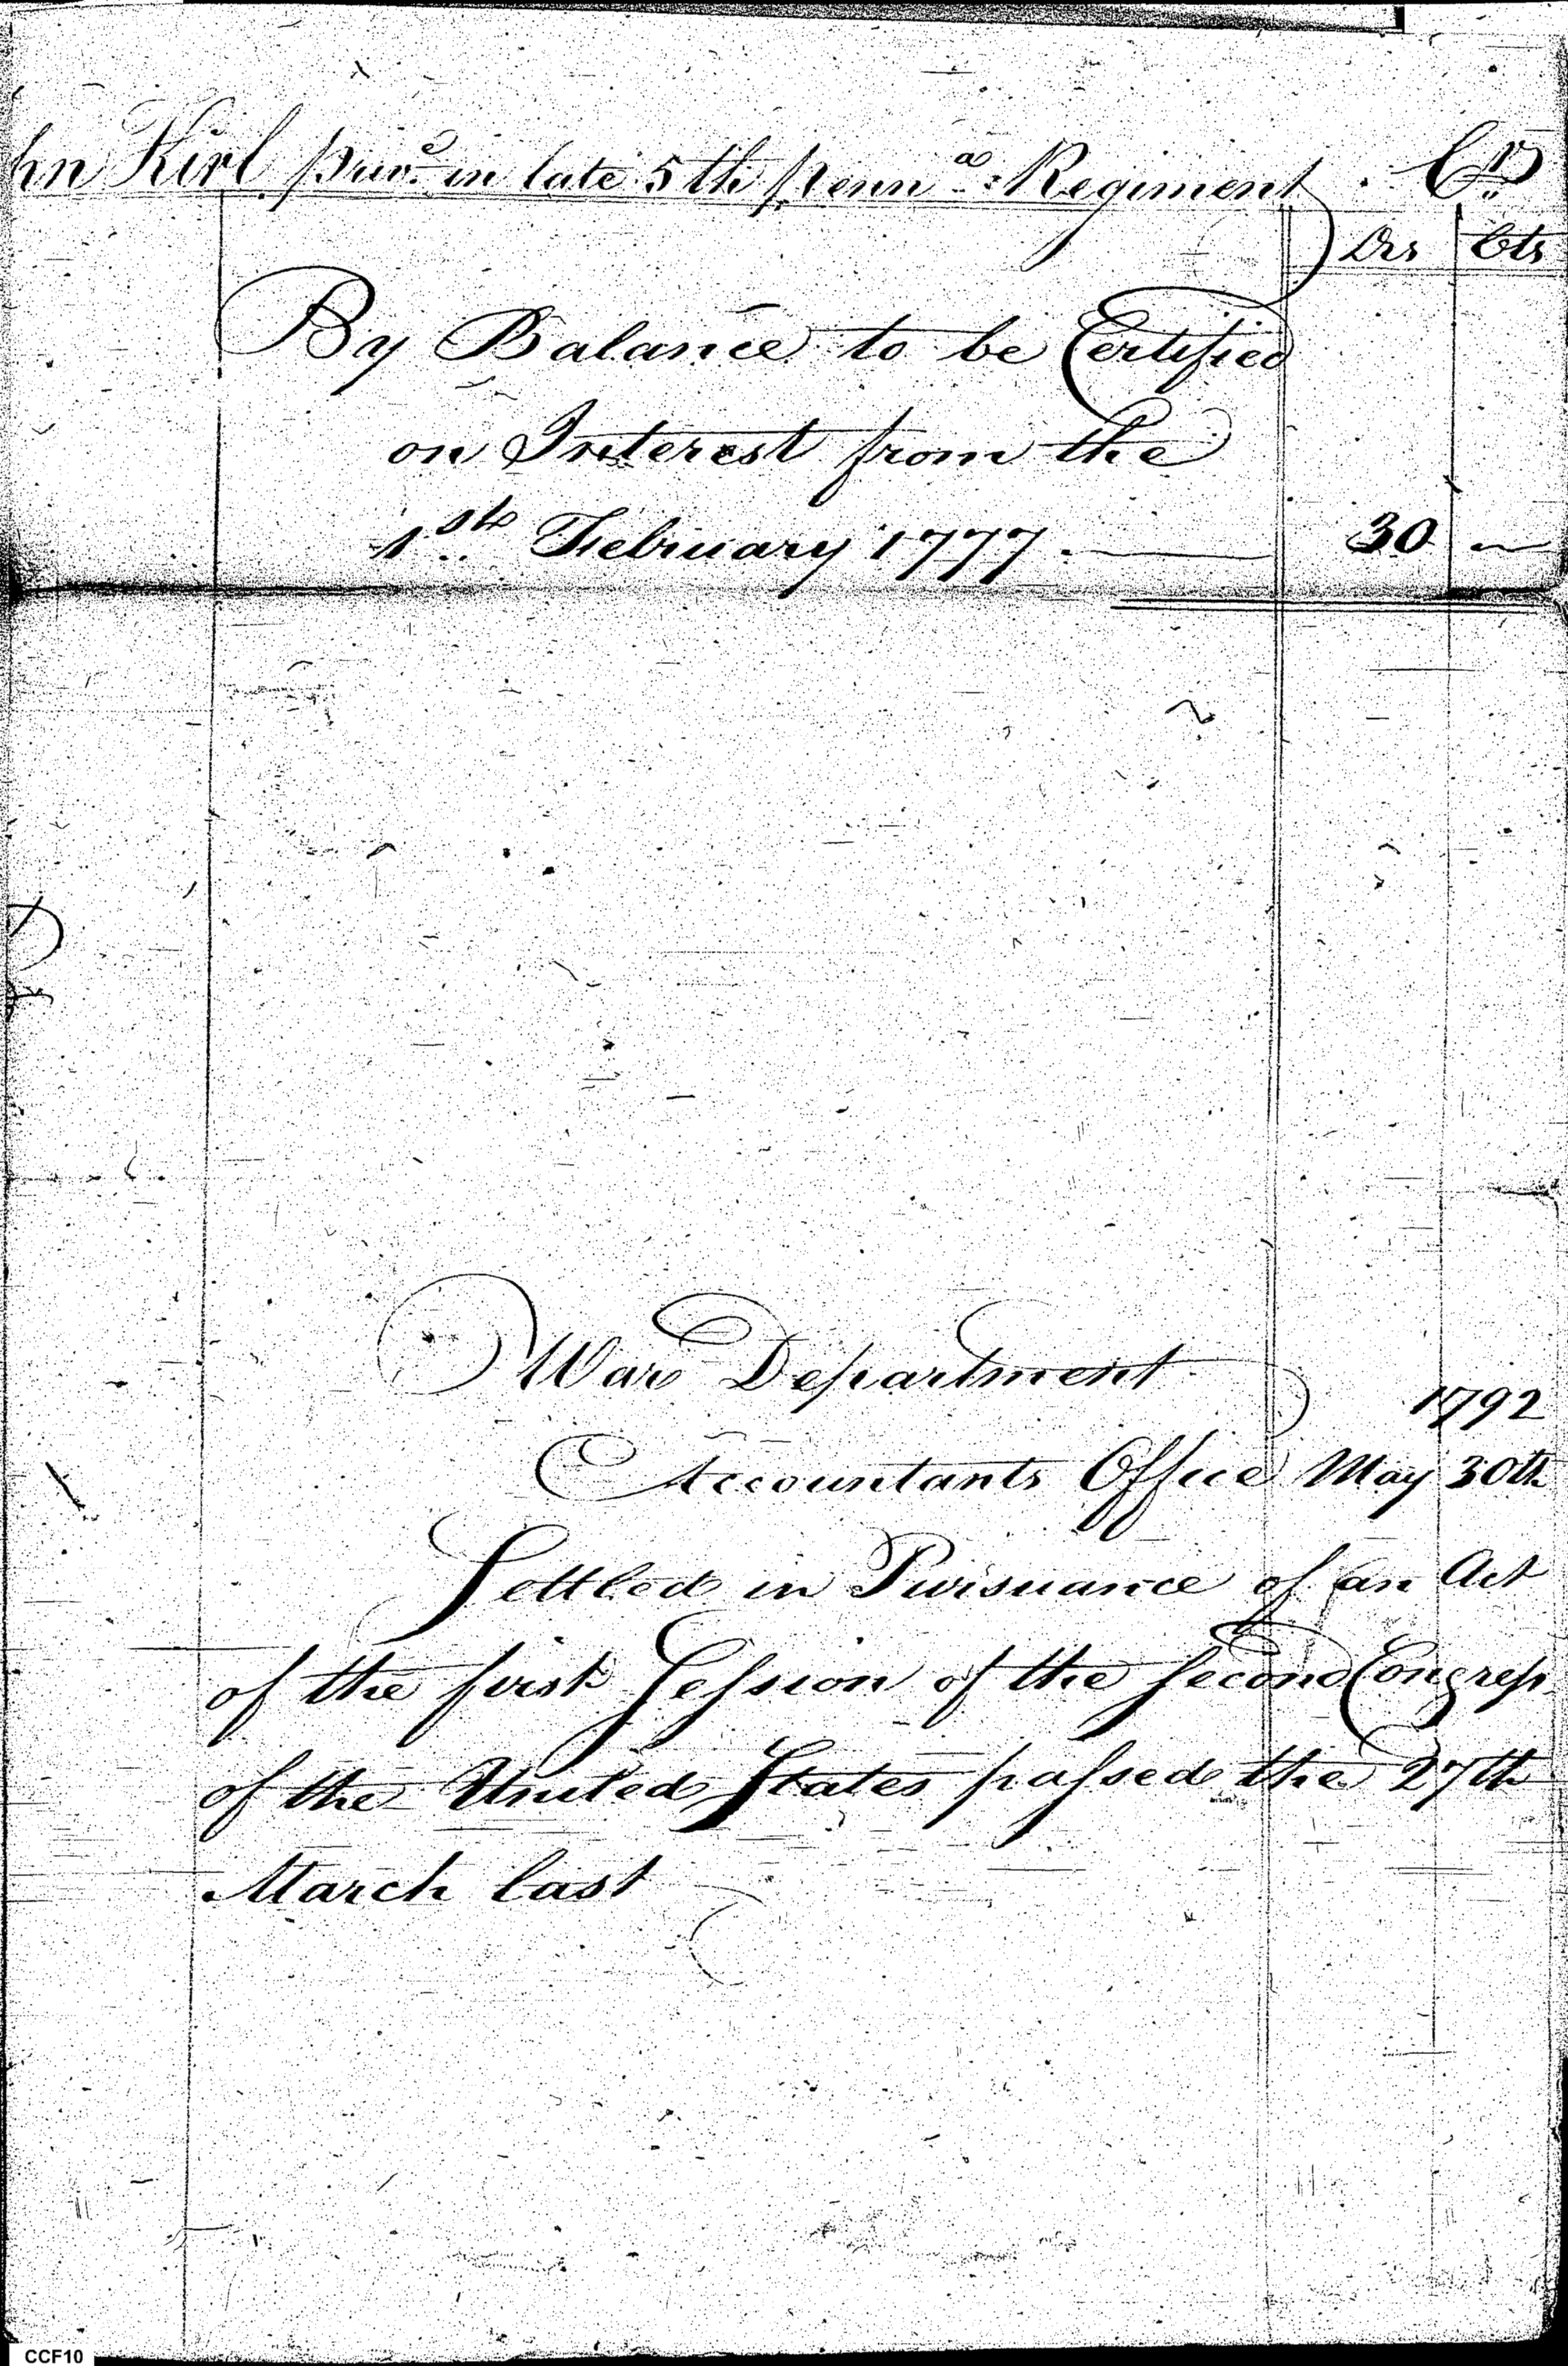 hn Kirl privᵉ in late 5th pennᵃ Regiment Cʳ
Drs Cts
By Balance to be Certified
on Interest from the
1st February 1777. 30 —
War Department
1792
Accountants Office May 30th
Settled in Pursuance of an Act
of the first Session of the second Congress
of the United States passed the 27th
March last
CCF10